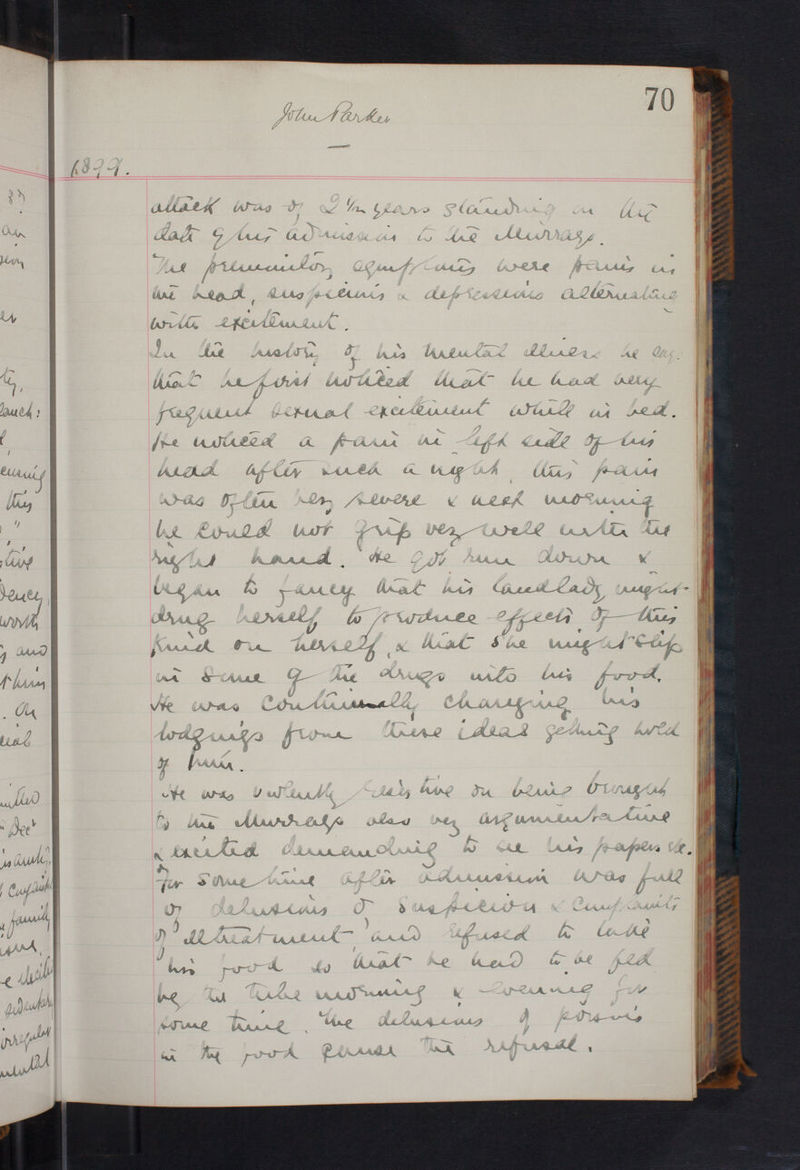 70
John Parker
1899.
attack was of 2 1/2 years standing on the
date of his admission to the Murrays.
The premonitory symptoms were pains in
the head, suspicions & depressions alternating
with excitement.
In the history of his mental illness he says
that he first noticed that he had very
frequent sexual excitement while in bed.
He noticed a pain in left side of his
head after such a night, this pain
was often very severe & next morning
he could not grip very well with the
right hand. He got run down &
began to fancy that his landlady might
drug herself to produce effects of this
kind on herself, & that she might slip
in some of the drugs into his food.
He was continually changing his
lodgings from these ideas getting hold
of him.
He was violently resistive on being brought
to the Murrays also very argumentative
& excited demanding to see his papers etc.
For some time after admission was full
of delusions of suspicion & complaints
of illtreatment, and refused to take
his food so that he had to be fed
by the tube morning & evening for
some time. The delusions of poisons
in the food cause the refusal.